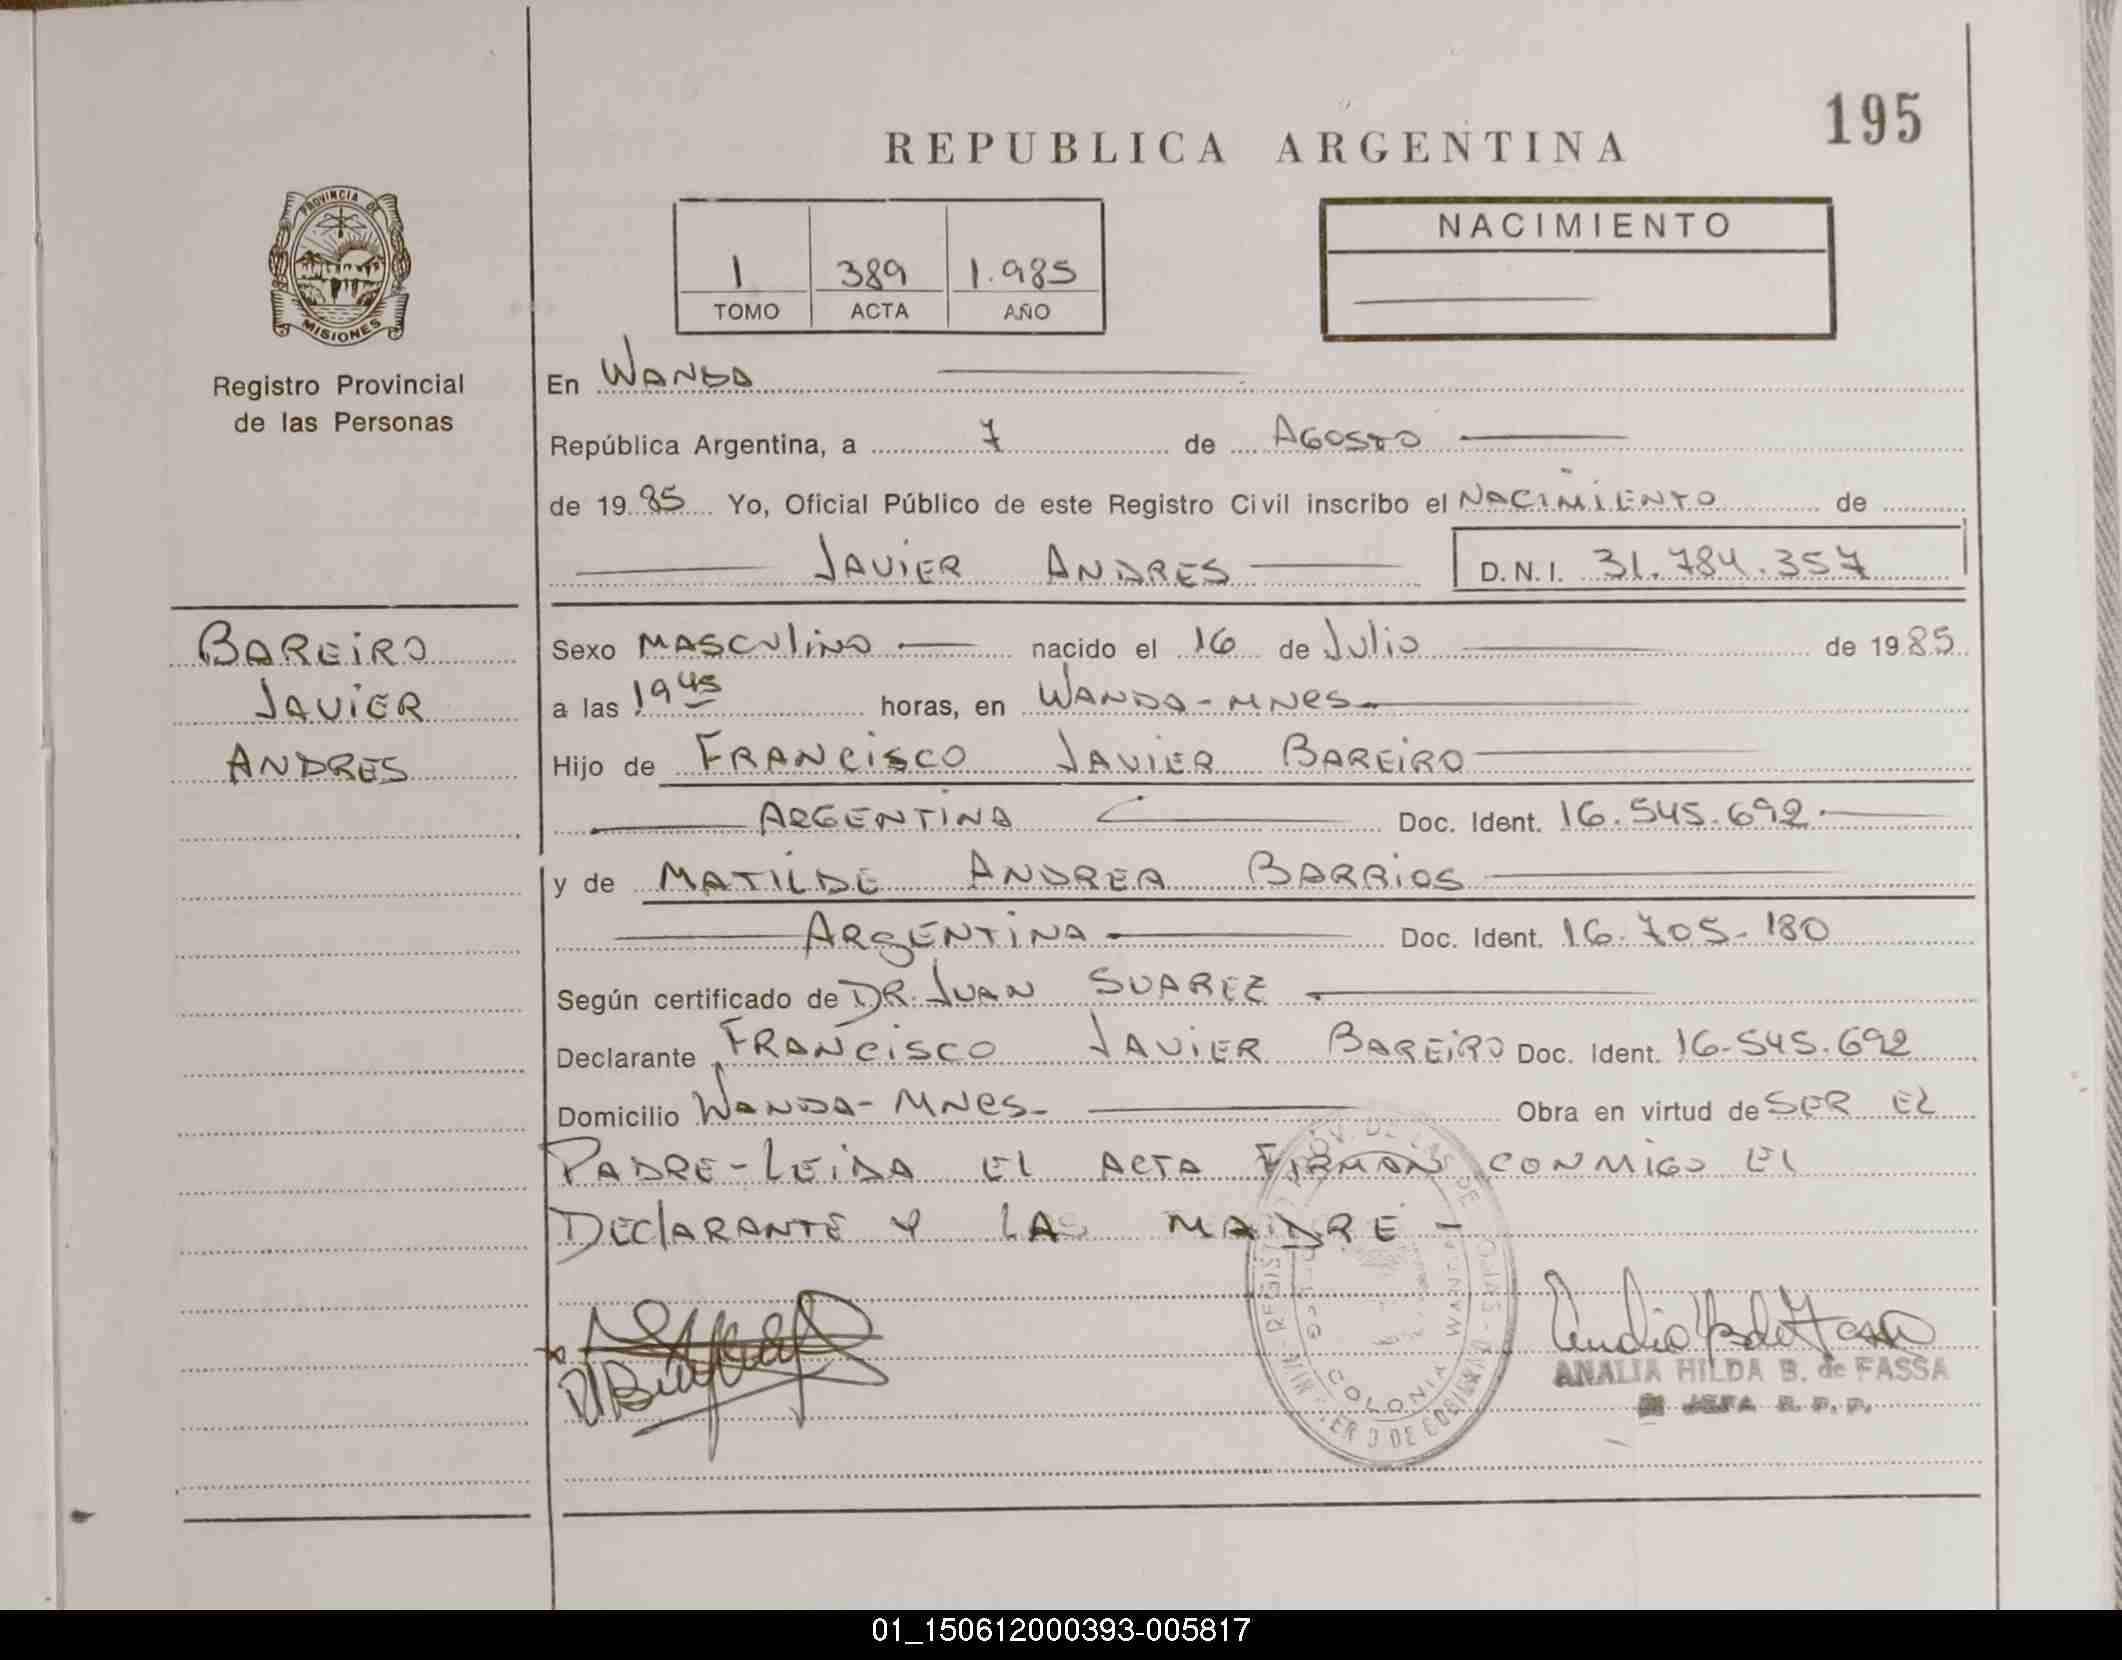 195
REPUBLICA ARGENTINA
PROVINCIA DE
MISIONES
Registro Provincial
de las Personas
1 389 1.985
TOMO ACTA AÑO
NACIMIENTO
En WANDA
República Argentina, a 7 de AGOSTO
de 19 85 Yo, Oficial Público de este Registro Civil inscribo el NACIMIENTO de
JAVIER ANDRES D.N.I. 31.784.357
BAREIRO
JAVIER
ANDRES
Sexo MASCULINO nacido el 16 de JULIO de 19 85
a las 19 45 horas, en WANDA-MNES
Hijo de FRANCISCO JAVIER BAREIRO
ARGENTINA Doc. Ident. 16.545.692
y de MATILDE ANDREA BARRIOS
ARGENTINA Doc. Ident. 16.705.180
Según certificado de DR. JUAN SUAREZ
Declarante FRANCISCO JAVIER BAREIRO Doc. Ident. 16.545.692
Domicilio WANDA-MNES- Obra en virtud de SER EL
PADRE-LEIDA EL ACTA FIRMAN CONMIGO EL
DECLARANTE Y LAS MADRE-
COLONIA WANDA
ANALIA HILDA B. de FASSA
JEFA R. P. P.
01_150612000393-005817